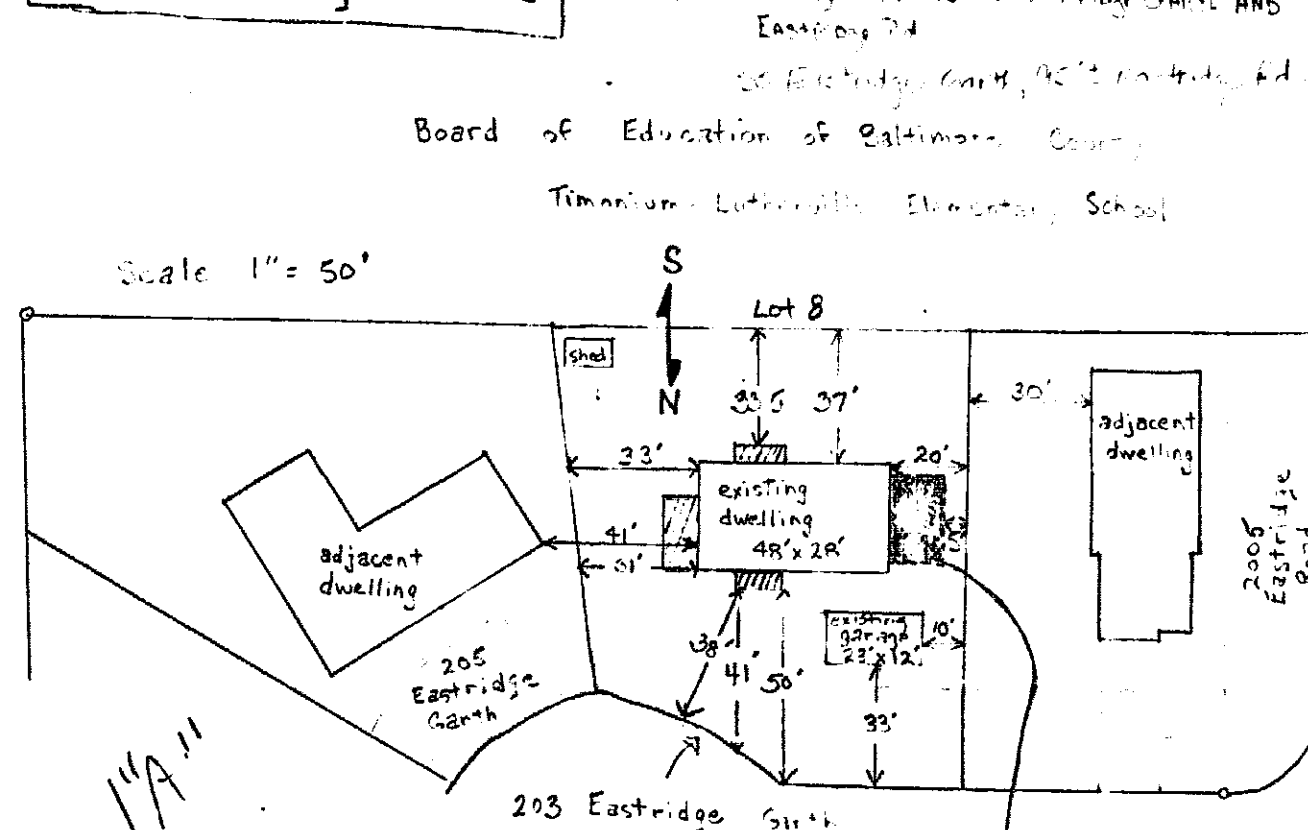 AND
Eastridge Rd
Board of Education of Baltimore County
Timonium Lutherville Elementary School
Scale 1" = 50'
S
N
Lot 8
shed
33.5
37'
30'
adjacent
dwelling
33'
20'
existing
dwelling
48' x 28'
41'
31'
adjacent
dwelling
2005
Eastridge
Road
existing
garage
23' x 12'
10'
38'
41'
50'
33'
205
Eastridge
Garth
"A"
203 Eastridge Garth